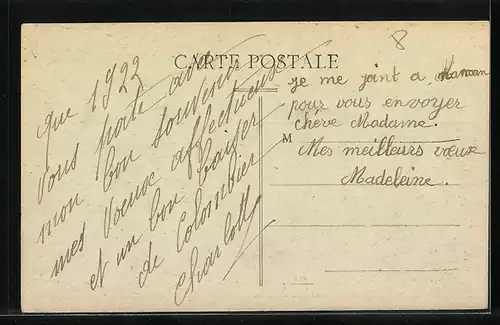 8
CARTE POSTALE
que 1922
vous porte avec
mon bon souvenir
mes voeux affectueux
et un bon baiser
de Colombier
Charlotte
je me joint a Maman
pour vous envoyer
chère Madame.
M
Mes meilleurs vœux
Madeleine.